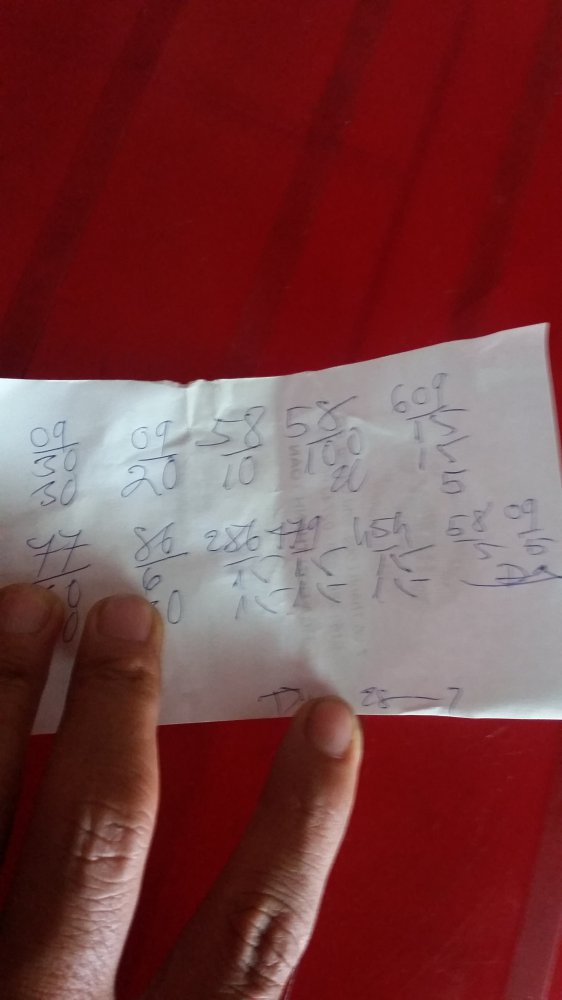 09 09 58 58 609
30 20 10 100 15
30 20 15
5
77 86 286 479 454 58 09
6 15 15 15 5 5
15 15 15
28 7